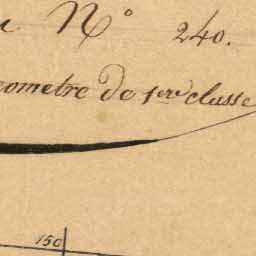 N° 240.
ometre de 1ere classe
150